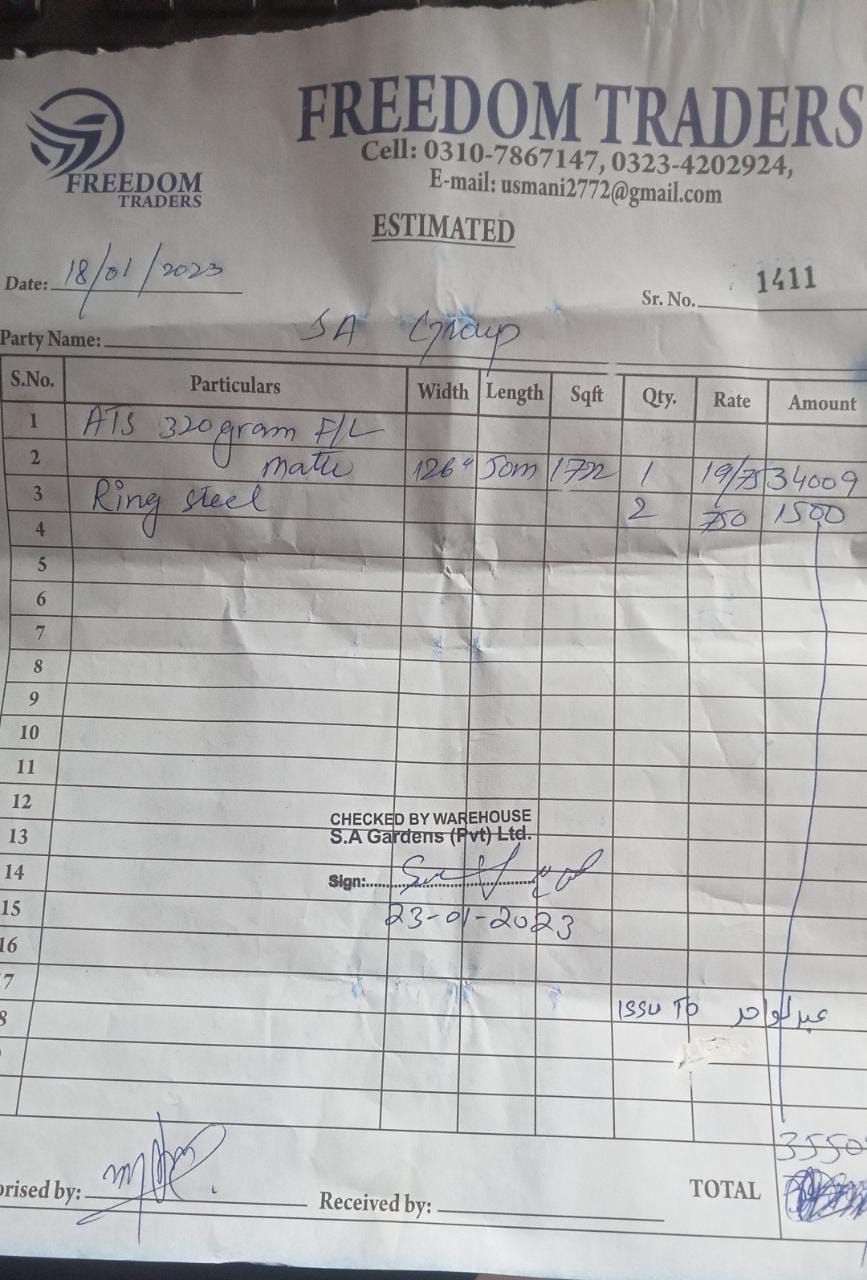 FREEDOM TRADERS
FREEDOM TRADERS
Cell: 0310-7867147, 0323-4202924,
E-mail: usmani2772@gmail.com
ESTIMATED
Date: 18/01/2023
Sr. No. 1411
Party Name: SA Group
S.No. Particulars Width Length Sqft Qty. Rate Amount
1 ATS 320 gram F/L
2 matte 126" 50m 1722 1 19/75 34009
3 Ring steel 2 750 1500
4
5
6
7
8
9
10
11
12
CHECKED BY WAREHOUSE
13 S.A Gardens (Pvt) Ltd.
14 Sign:
15 23-01-2023
16
7
8 ISSU TO
3550
orised by: Received by: TOTAL